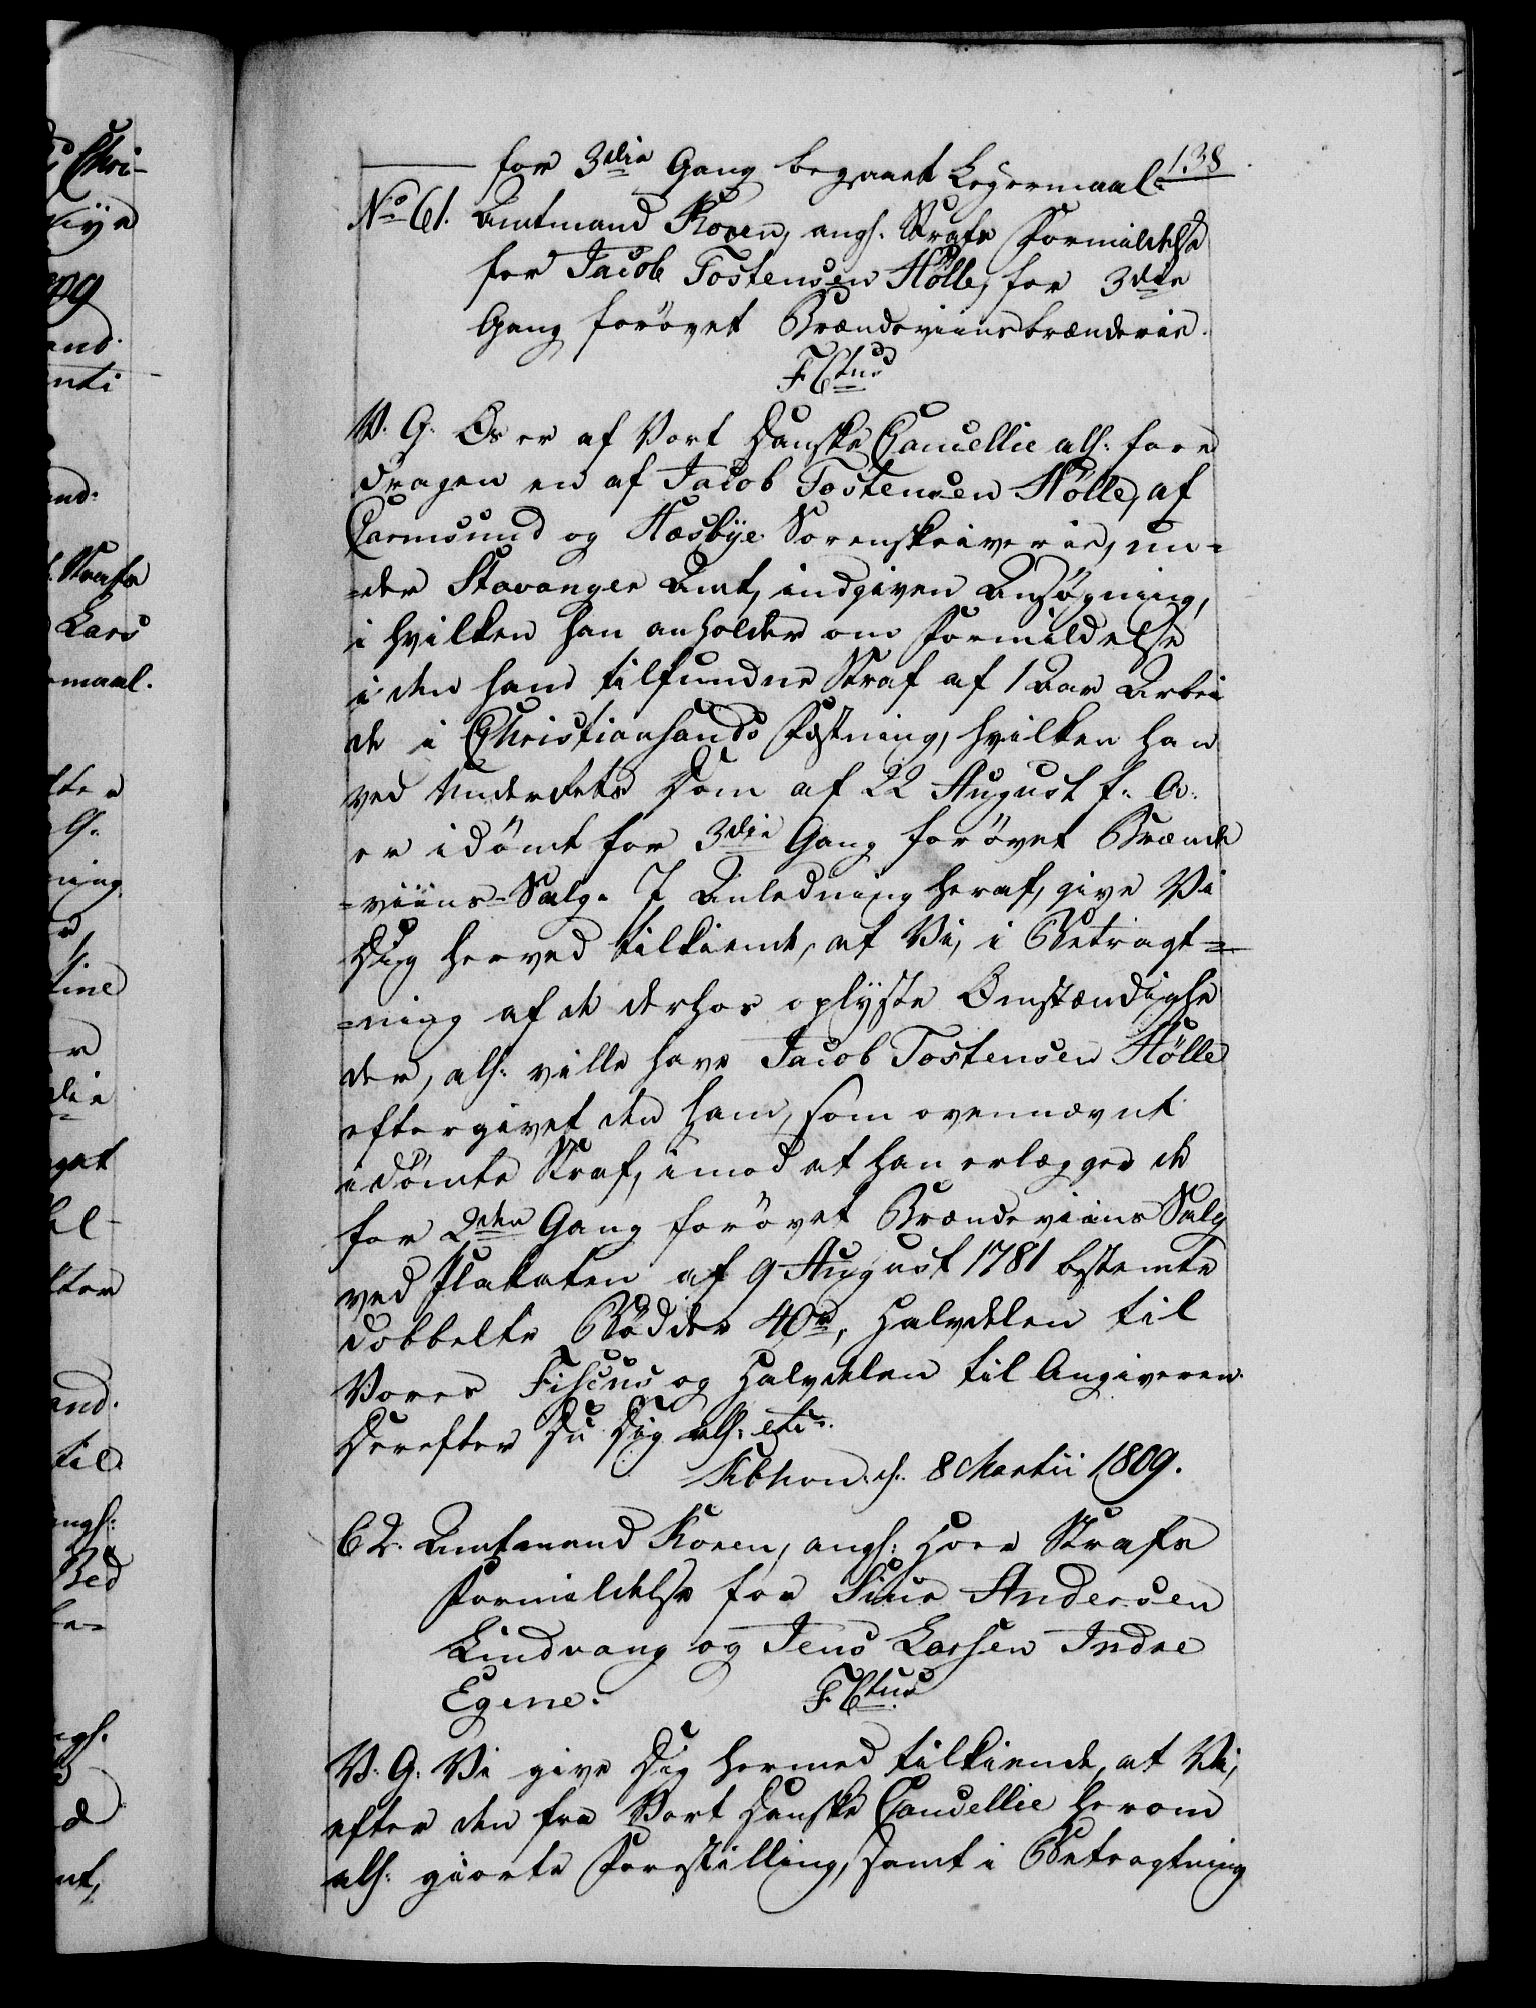 138
for 3die Gang begaaet Leyermaal.
No 61. Amtmand Koren, angl. Straffe Formildelse
for Jacob Tostensen Hølle, for 3die
Gang forövet Brændeviinsbrænderie.
F Ctus
V. G. Os er af Vort Danske Cancellie all: fore
dragen en af Jacob Tostensen Hölle, af
Carmsund og Hæsbÿe Sorenskriverie, un-
-der Stavanger Amt, indgiven Ansögning,
i hvilken han anholder om Formildelse
i den ham tilfundne Straf af 1 Aar Arbei
de i Christiansands Fæstning, hvilken han
ved Underrets Dom af 22 August f. A.
er idömt for 3die Gang forövet Brænde
-viins-Salg. I Anledning heraf, give Vi
Dig herved tilkiende, at Vi, i Betragt-
-ning af de derhos oplÿste Omstændighe
der, all: ville have Jacob Tostensen Hölle
eftergivet den ham, som ovennævnt
idömte Straf, imod at han erlægger de
for 2den Gang forövet Brændeviins Salg
ved Plakaten af 9 August 1781 bestemte
dobbelte Bödder 40rd, Halvdelen til
Vores Fiscus og Halvdelen til Angiveren.
Derefter Du Dig all: etc.
Kbhvn. d. 8 Martii 1809.
62. Amtmand Koren, angl: Hors Straffs
Formildelse for Siur Andersen
Lindvang og Jens Larsen Indre
Egene. F Ctus
V. G. Vi give Dig hermed tilkiende, at Vi,
efter den fra Vort Danske Cancellie herom
all: giorte Forestilling, samt i Betragtning